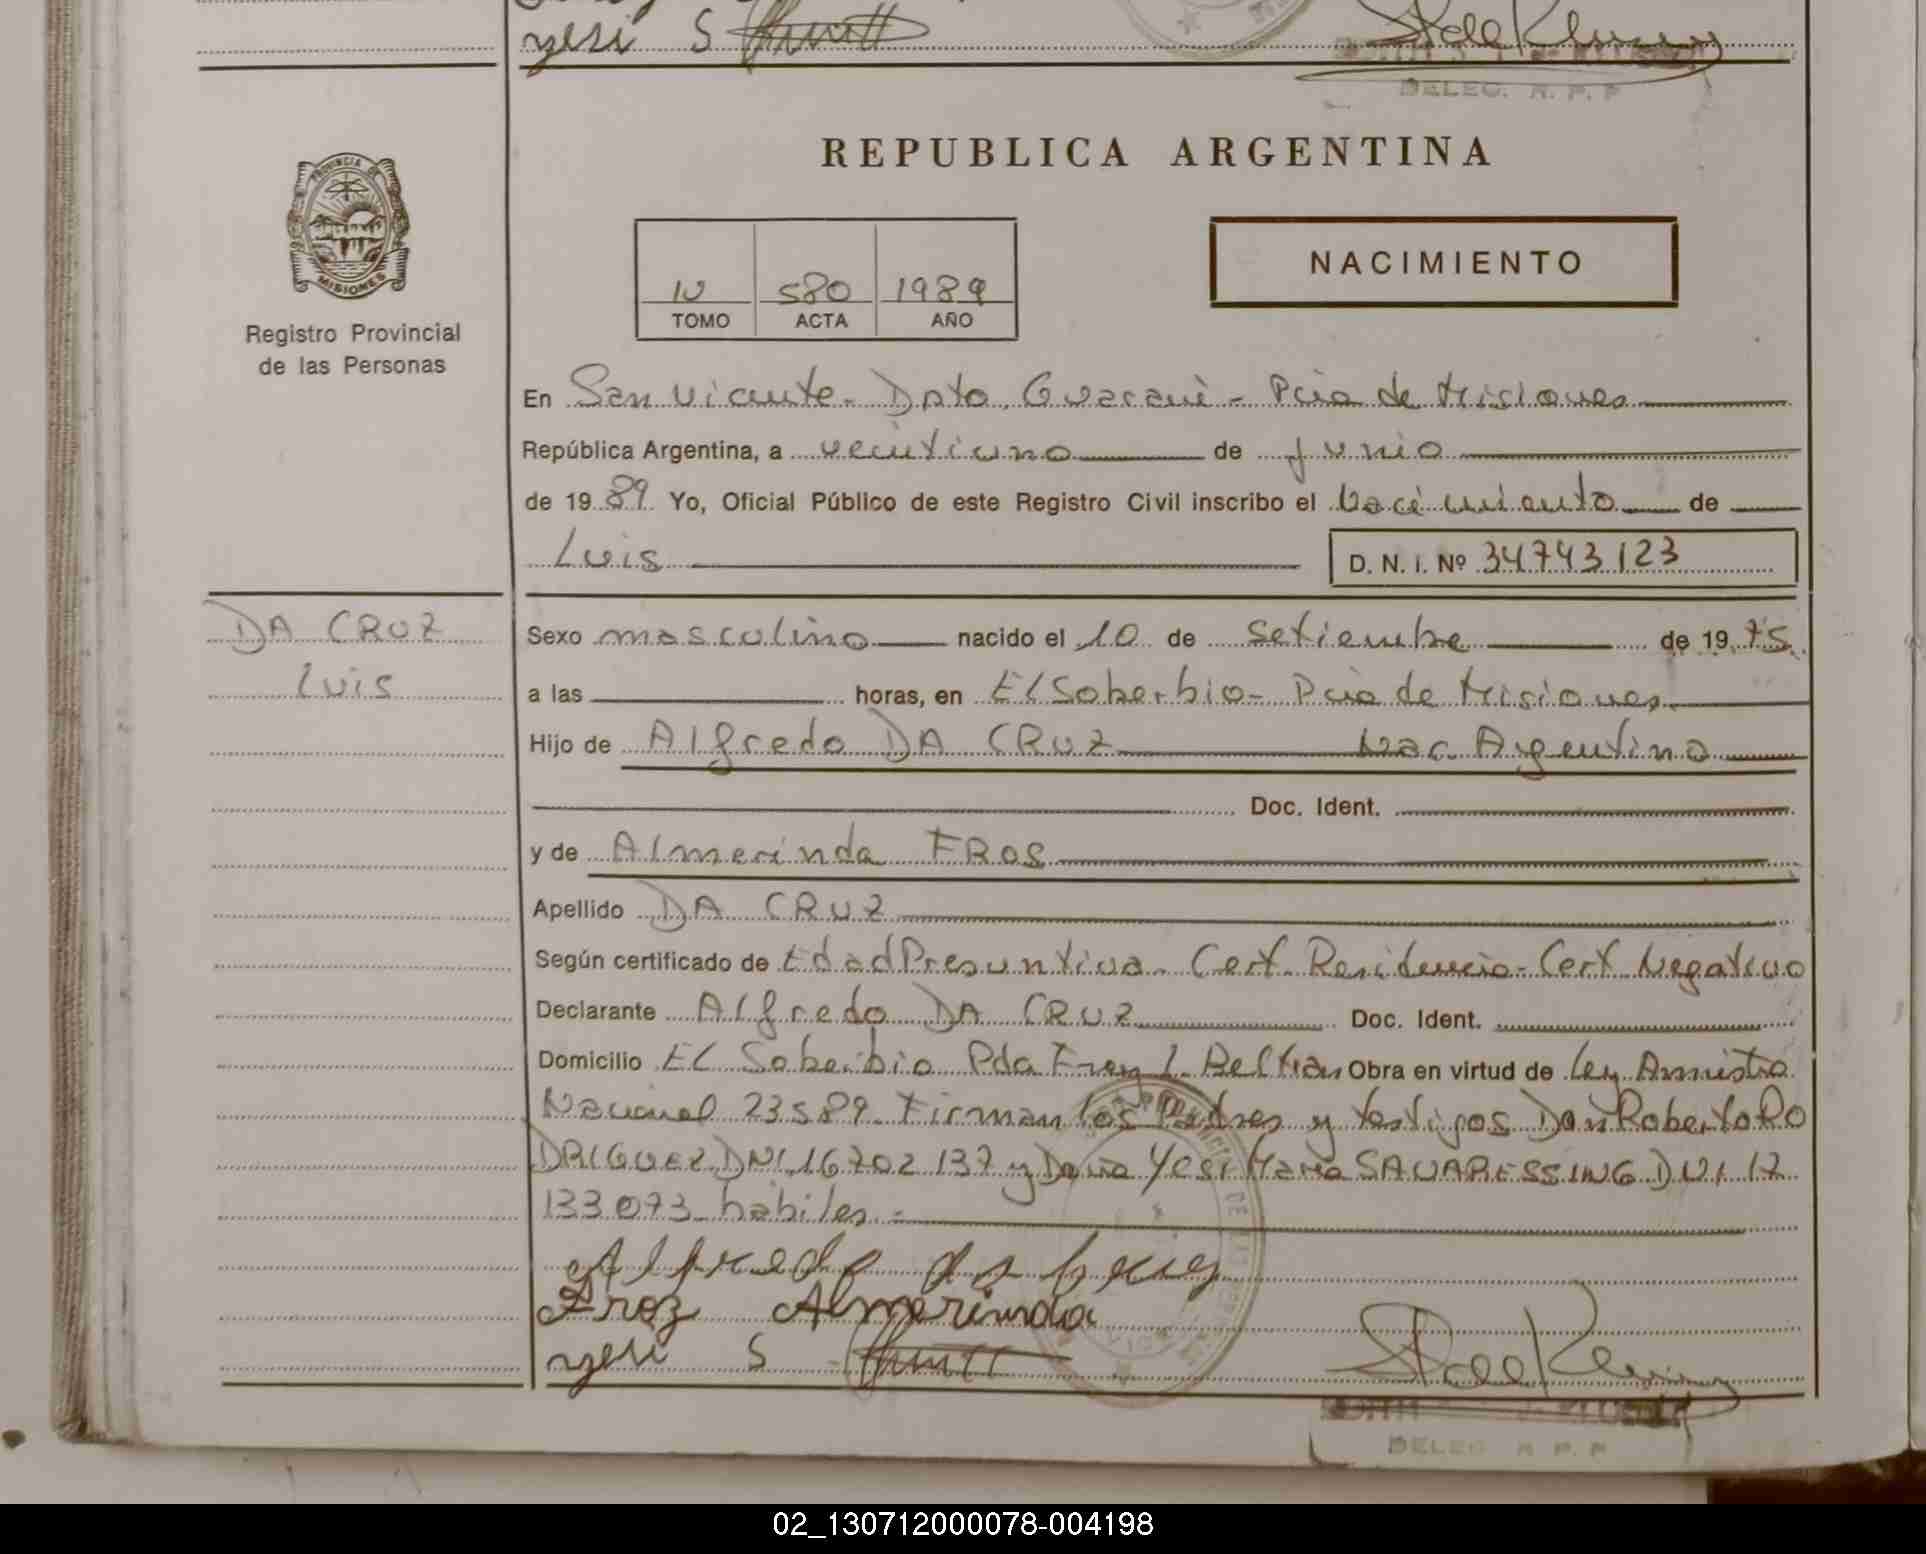 yesi S
DELEG. R. P. P
REPUBLICA ARGENTINA
PROVINCIA DE MISIONES
Registro Provincial
de las Personas
IV 580 1989
TOMO ACTA AÑO
NACIMIENTO
En San Vicente - Dpto. Guaraní - Pcia de Misiones
República Argentina, a veintiuno de junio
de 1989 Yo, Oficial Público de este Registro Civil inscribo el Nacimiento de
Luis D. N. I. Nº 34743123
DA CRUZ
Luis
Sexo masculino nacido el 10 de Setiembre de 1975
a las horas, en El Soberbio - Pcia de Misiones.
Hijo de Alfredo DA CRUZ Nac. Argentino
Doc. Ident.
y de Almerinda FROS
Apellido DA CRUZ
Según certificado de Edad Presuntiva. Cert. Residencia - Cert Negativo
Declarante Alfredo DA CRUZ Doc. Ident.
Domicilio El Soberbio Pda Fray L. Beltran Obra en virtud de Ley Amnistia
Nacional 23589. Firman los Padres y testigos Don Roberto RO
DRIGUEZ DNI. 16702 137 y Doña Yesi Maria SAUARESSING DNI 17
133073 habiles. -
Alfredo da Cruz
Froz Almerinda
yesi S
DELEG R. P. P
02_130712000078-004198